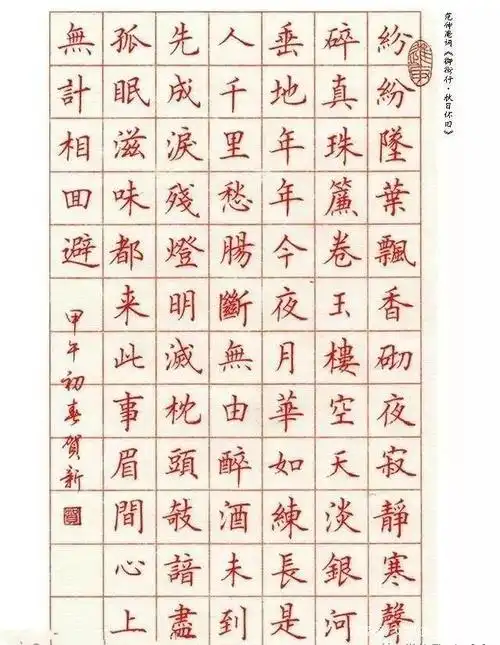 紛紛墜葉飄香砌夜寂靜寒聲
碎真珠簾卷玉樓空天淡銀河
垂地年年今夜月華如練長是
人千里愁腸斷無由醉酒未到
先成淚殘燈明滅枕頭攲諳盡
孤眠滋味都来此事眉間心上
無計相回避
甲午初春賀新
范仲淹词《御街行·秋日怀旧》